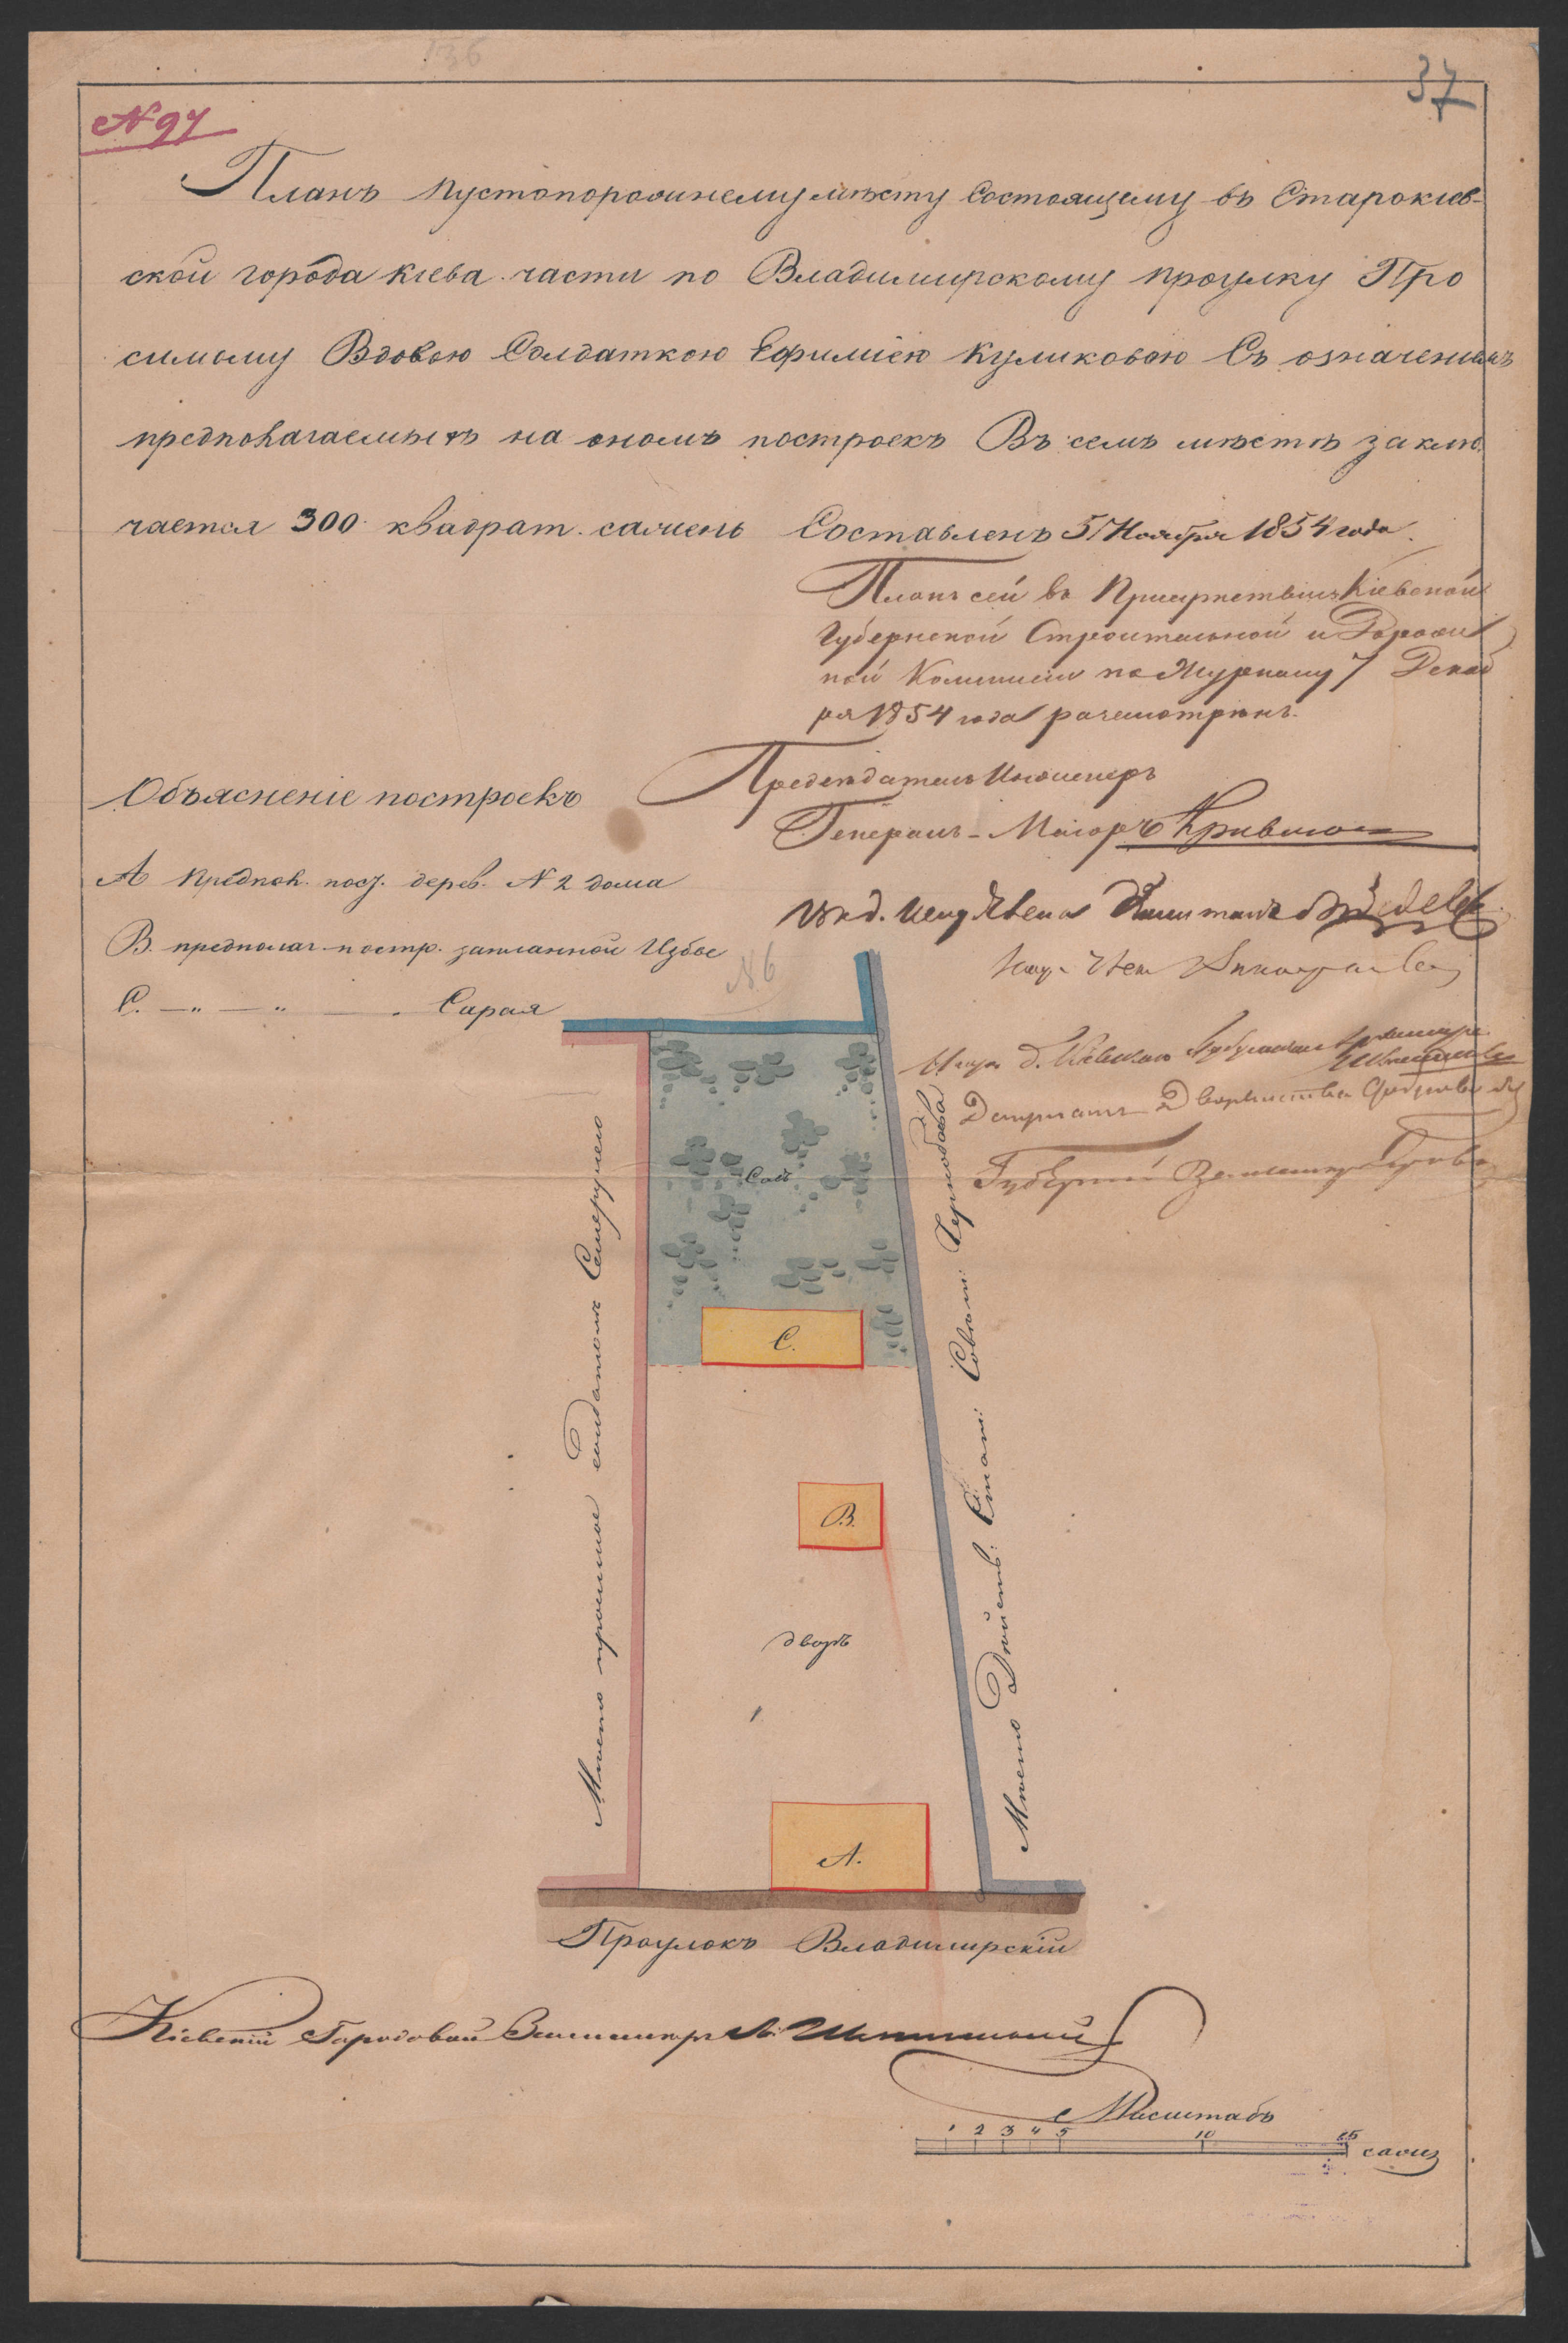 136
37
N 97
Планъ пустопорожнему мѣсту состоящему въ Старокіев-
ской города Кіева части по Владимирскому проулку Про
симому Вдовою Солдаткою Ефиміею Куликовою Съ означеніемъ
предполагаемыхъ на ономъ построекъ Въ семъ мѣстѣ заклю
чается 300 квадрат. сажень Составленъ 5 Ноября 1854 года.
Планъ сей въ Присутствіи Кіевской
Губернской Строительной и Дорож
ной Коммисіи по Журналу 7 Декаб
ря 1854 года разсмотрѣнъ.
Предсѣдатель Инженеръ
Генералъ-Маіоръ
Объясненіе построекъ
А Предпол. пост. дерев. N 2 дома
В. предполаг. постр. земланной Избы
С. —"— —"— Сарая
N 6
Депутатъ Дворянства
Садъ
С.
В.
дворъ
А.
Мѣсто просимое солдатомъ
Мѣсто Дѣйств. Стат. Совѣт.
Проулокъ Владимирскій
Кіевскій Городовой Землемѣръ
Масштабъ
1 2 3 4 5 10 15 саж.